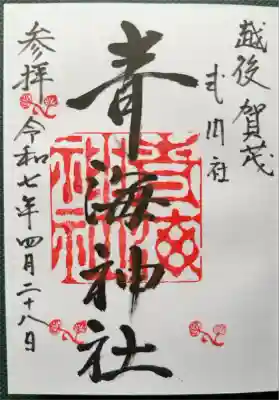 越後賀茂
式内社
青海神社
参拝
令和七年四月二十八日